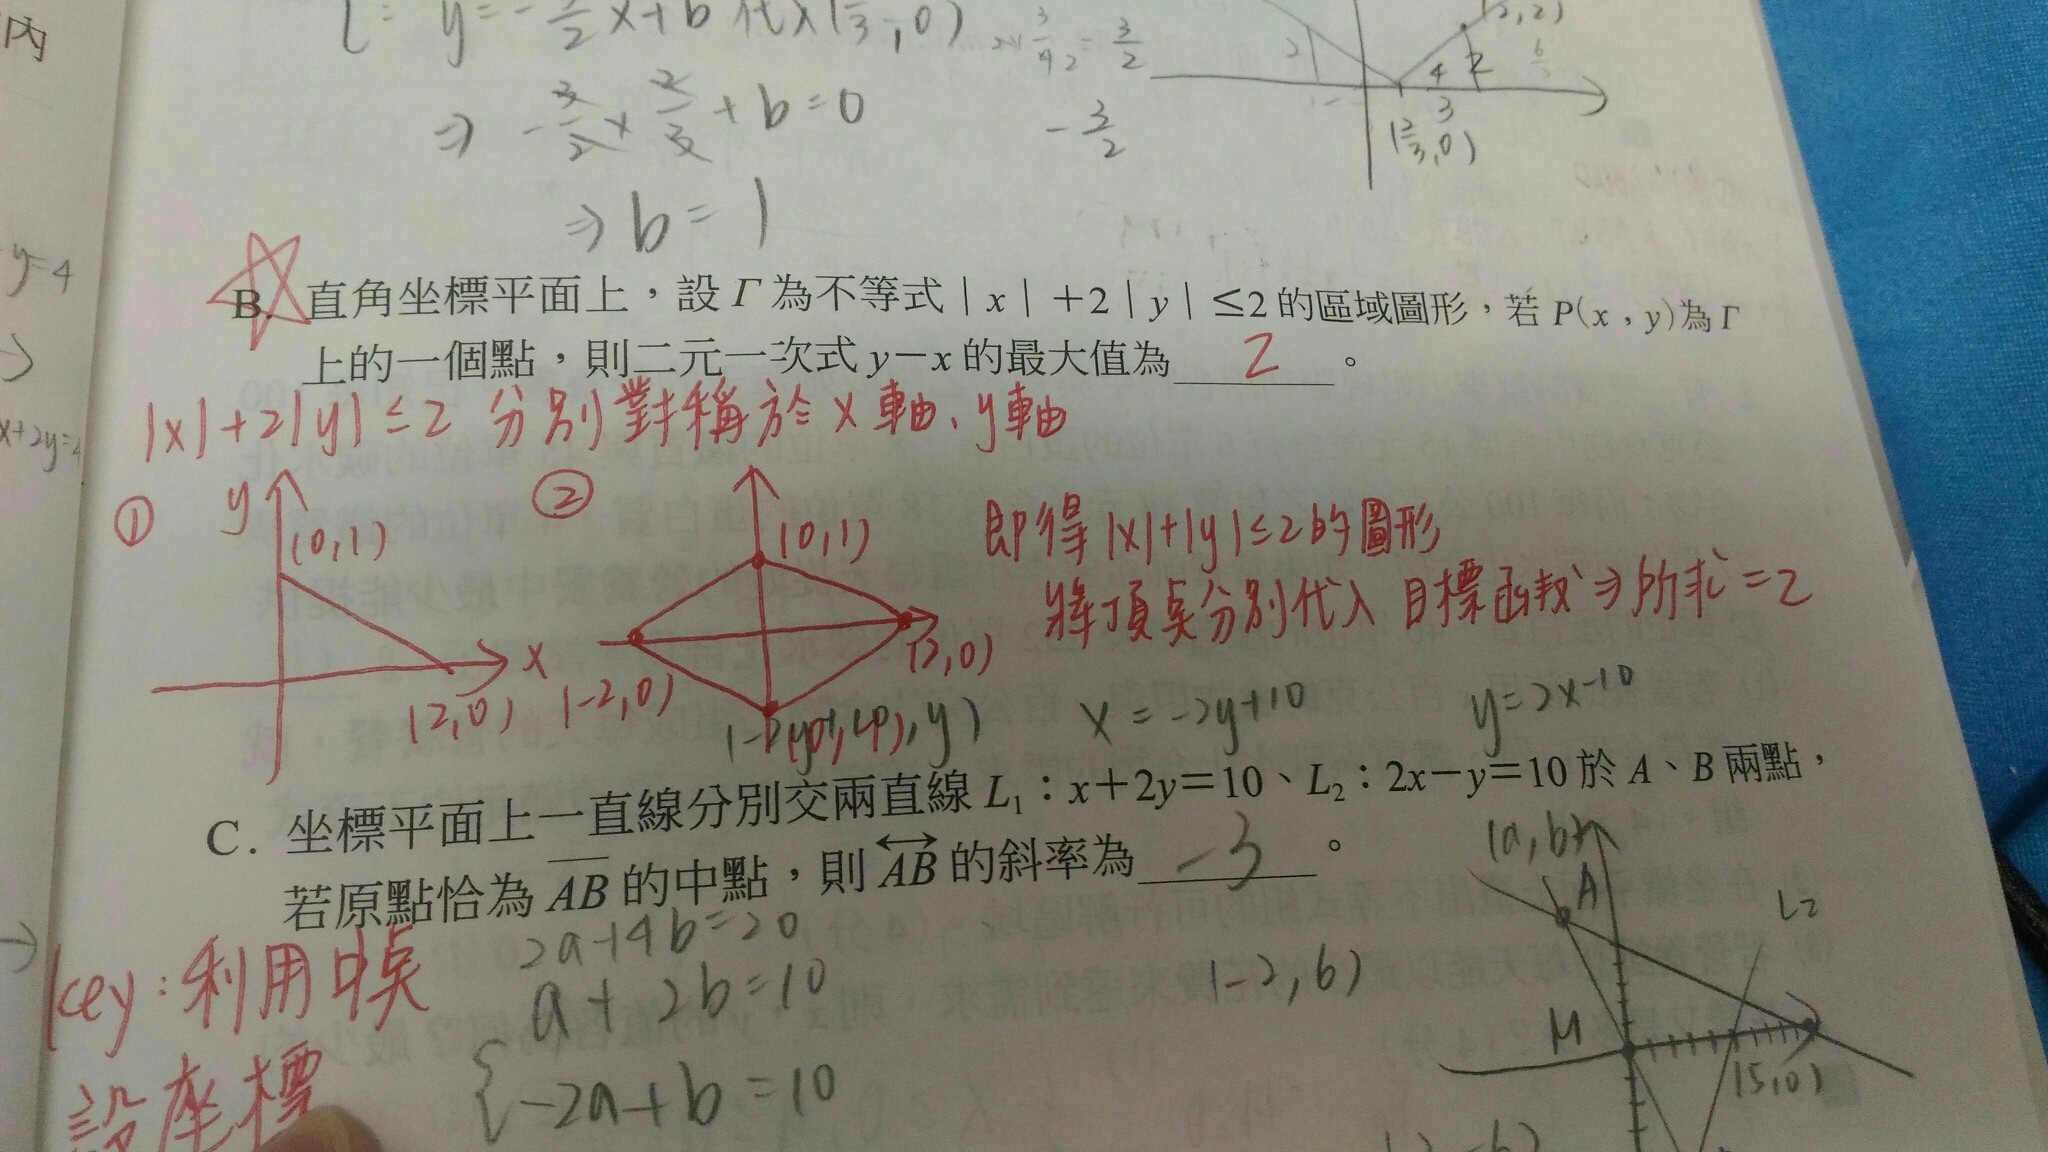 內
L: y=-3/2x+b 代入(2/3,0)
3/2
(2,2)
⇒ -3/2×2/3+b=0
-3/2
(2/3,0)
⇒ b=1
y=4
x+2y=4
B. 直角坐標平面上，設 Γ 為不等式 | x | +2 | y | ≤2 的區域圖形，若 P(x , y)為 Γ
上的一個點，則二元一次式 y－x 的最大值為 2 。
|x|+2|y|≤2 分別對稱於 x 軸、y軸
① y (0,1) x (2,0)
② (0,1) (-2,0) (2,0)
即得 |x|+|y|≤2的圖形
將頂點分別代入 目標函数⇒所求=2
x=-2y+10
y=2x-10
C. 坐標平面上一直線分別交兩直線 L₁：x＋2y＝10、L₂：2x－y＝10 於 A、B 兩點，
若原點恰為 AB 的中點，則 AB 的斜率為 -3 。
key:利用中点
設座標
2a+4b=20
a+2b=10
-2a+b=10
(-2,6)
(a,b)
A
L2
M
(5,0)